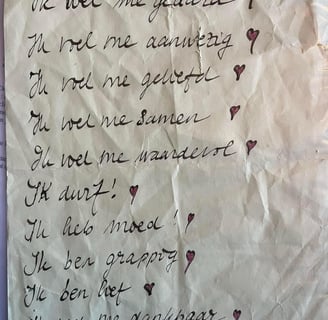 Ik voel me
Ik voel me aanwezig
Ik voel me geliefd
Ik voel me samen
Ik voel me waardevol
Ik durf!
Ik heb moed!
Ik ben grappig
Ik ben lief
Ik voel me dankbaar